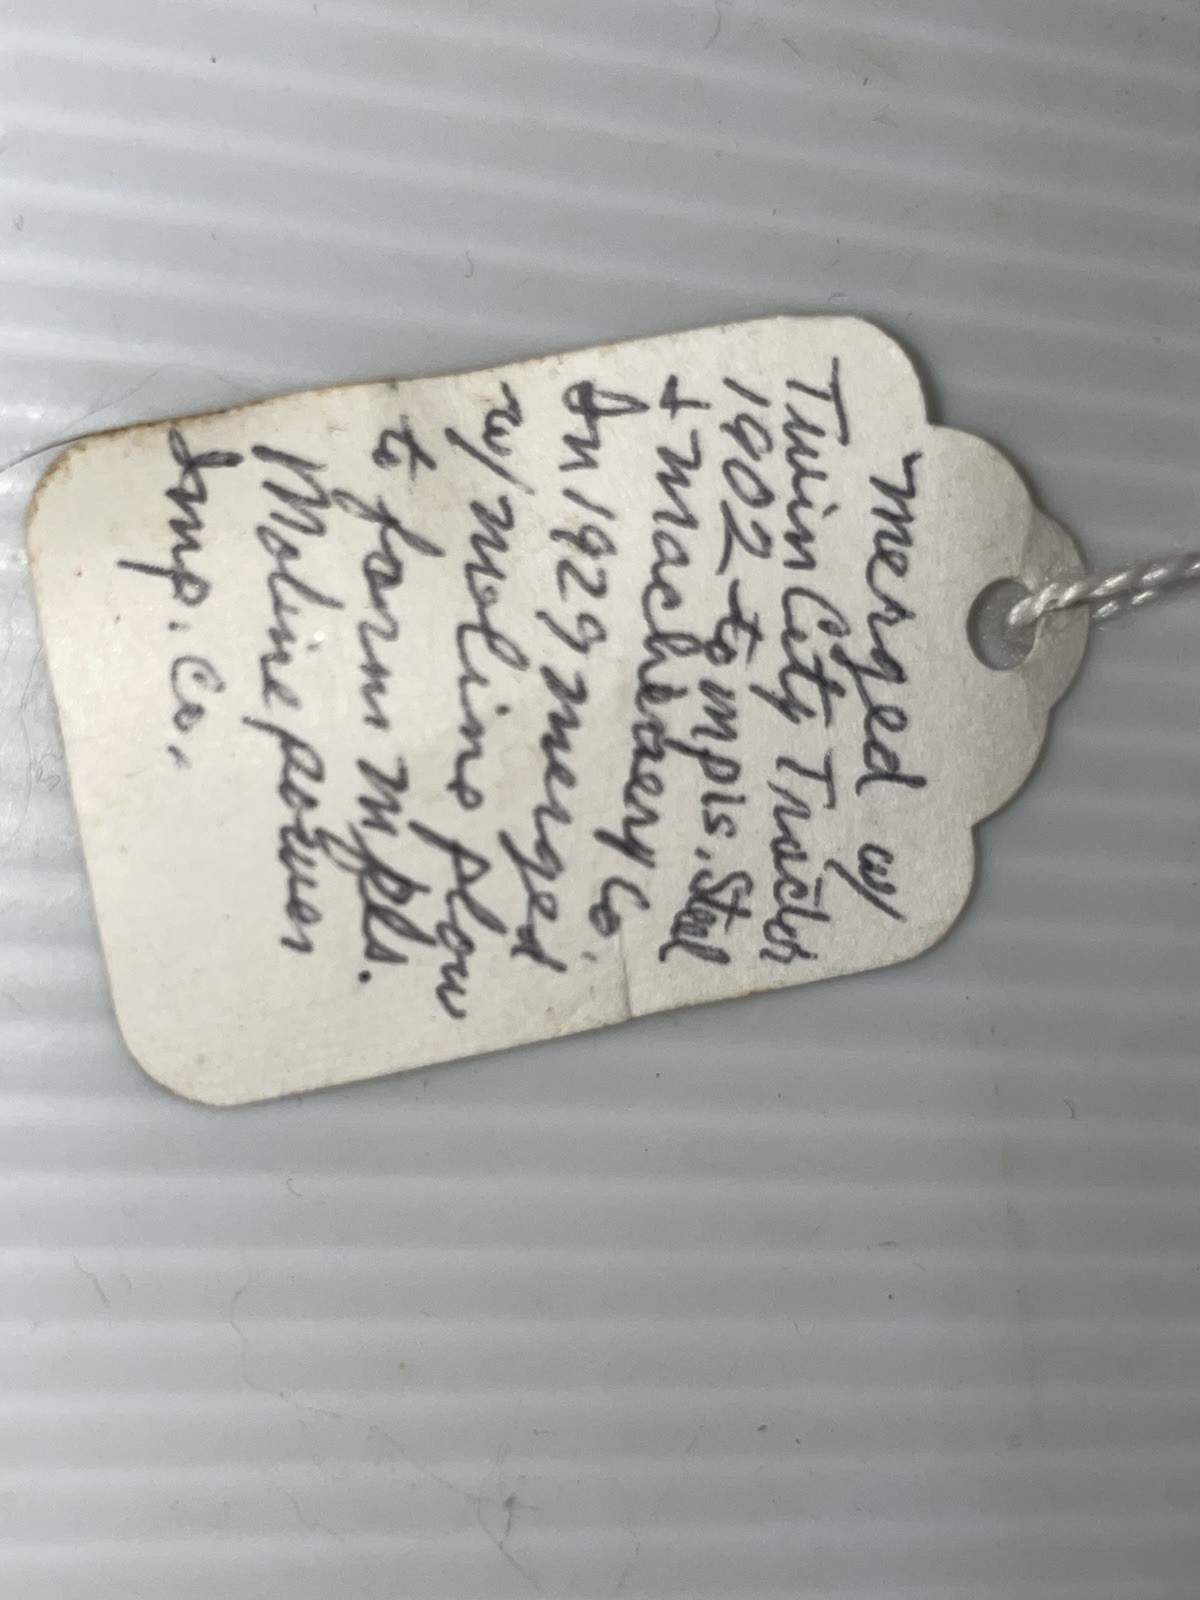 Merged w/
Twin City Tractor
1902 to Mpls. Steel
& Machinery Co.
In 1929 merged
w/ Moline plow
to form Mpls.
Moline power
Imp. Co.